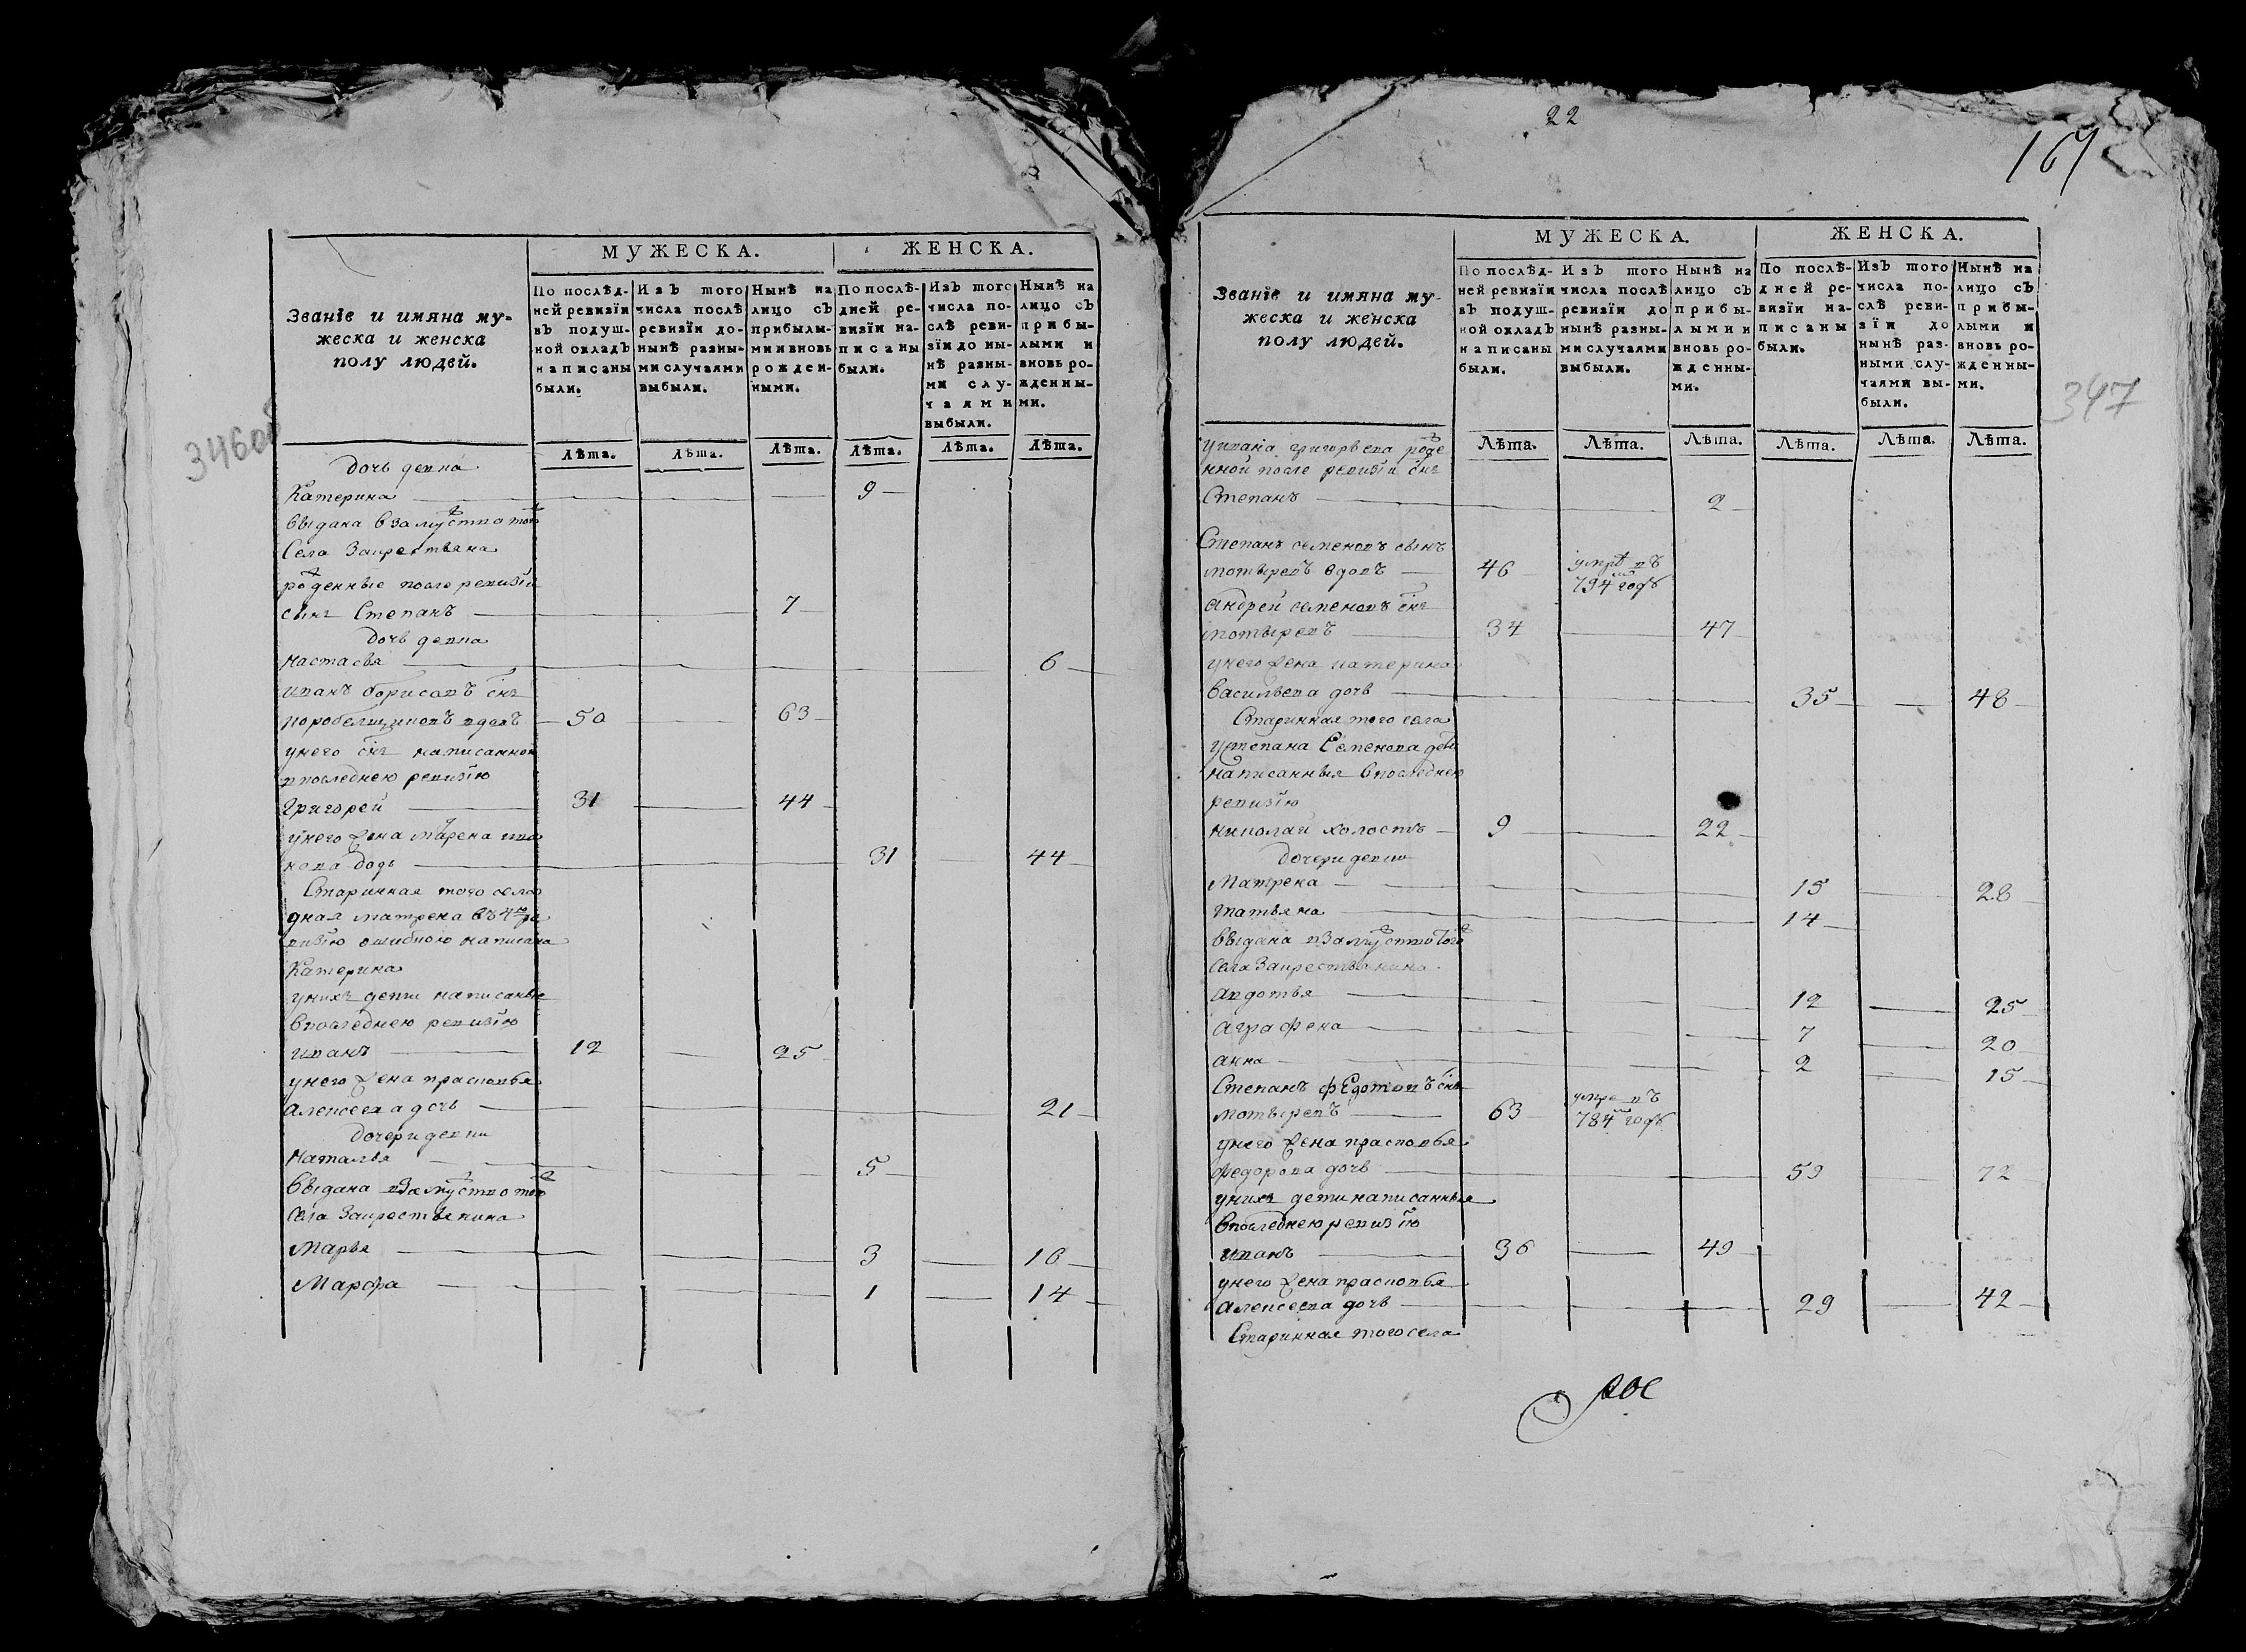 346об
Званіе и имяна му-
жеска и женска
полу людей.
МУЖЕСКА.
ЖЕНСКА.
По послѣд-
ней ревизіи
въ подуш-
ной окладъ
написаны
были.
Изъ того
числа послѣ
ревизіи до-
нынѣ разны-
ми случаями
выбыли.
Нынѣ на
лицо съ
прибылы-
ми и вновь
рожден-
ными.
По послѣ-
дней ре-
визіи на-
писаны
были.
Изъ того
числа по-
слѣ реви-
зіи до ны-
нѣ разны-
ми слу-
чаями
выбыли.
Нынѣ на
лицо съ
прибы-
лыми и
вновь ро-
жденны-
ми.
Лѣта. Лѣта. Лѣта. Лѣта. Лѣта. Лѣта.
дочь девка
Катерина 9
выдана взамуство того
села Закрестьяна
рожденные после ревизіи
сынъ Степанъ 7
дочь девка
настасья 6
иванъ борисовъ снъ
коробелщиковъ вдовъ 50 63
унего снъ написанной
впоследнею ревизію
Григорей 31 44
унего жена матрена ива
нова дочь 31 44
Старинная того села о
дная матрена въ 4ю ре
визію ошибкою написана
Катерина
унихъ дети написаные
впоследнею ревизію
иванъ 12 25
унего жена прасковья
алексеева дочь 21
дочери девки
наталья 5
выдана взамуство того
села Закрестьянина
Марья 3 16
Марфа 1 14
22
167
347
Званіе и имяна му-
жеска и женска
полу людей.
МУЖЕСКА.
ЖЕНСКА.
По послѣд-
ней ревизіи
въ подуш-
ной окладъ
написаны
были.
Изъ того
числа послѣ
ревизіи до
нынѣ разны-
ми случаями
выбыли.
Нынѣ на
лицо съ
прибы-
лыми и
вновь ро-
жденны-
ми.
По послѣ-
дней ре-
визіи на-
писаны
были.
Изъ того
числа по-
слѣ реви-
зіи до
нынѣ раз-
ными слу-
чаями вы-
были.
Нынѣ на
лицо съ
прибы-
лыми и
вновь ро-
жденны-
ми.
Лѣта. Лѣта. Лѣта. Лѣта. Лѣта. Лѣта.
уивана григорьева рожде
нной после ревизіи снъ
Степанъ 2
Степанъ семеновъ сынъ
мотыревъ вдовъ 46 умре въ
794м годѣ
андрей семеновъ снъ
мотыревъ 34 47
унего жена катерина
васильева дочь 35 48
Старинная того села
устепана Семенова дети
написанныя впоследнею
ревизію
николай холостъ 9 22
дочери девки
Матрена 15 28
татьяна 14
выдана взамуство того
села Закрестьянина
авдотья 12 25
аграфена 7 20
анна 2 15
Степанъ федотовъ снъ
мотыревъ 63 умре въ
784м годѣ
унего жена прасковья
федорова дочь 59 72
унихъ дети написанныя
впоследнею ревизію
иванъ 36 49
унего жена прасковья
алексеева дочь 29 42
Старинная того села